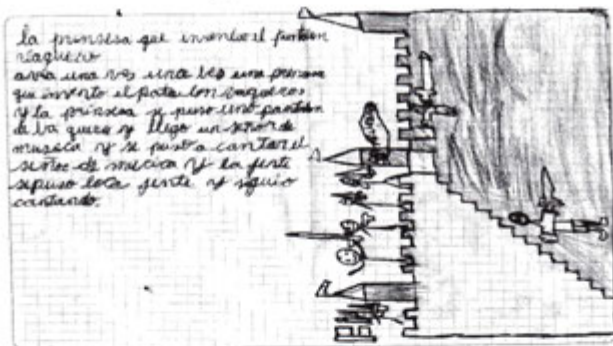 la prinsesa que invento el pantalon
vaquero
avia una ves una ves una prinsesa
que invento el patalon vaqueros
y la prinsesa se puso uno pantalon
de va queros y llego un señor de
musica y se puso a cantar el
señor de musica y la jente
se puso loca jente y siguio
cantando.